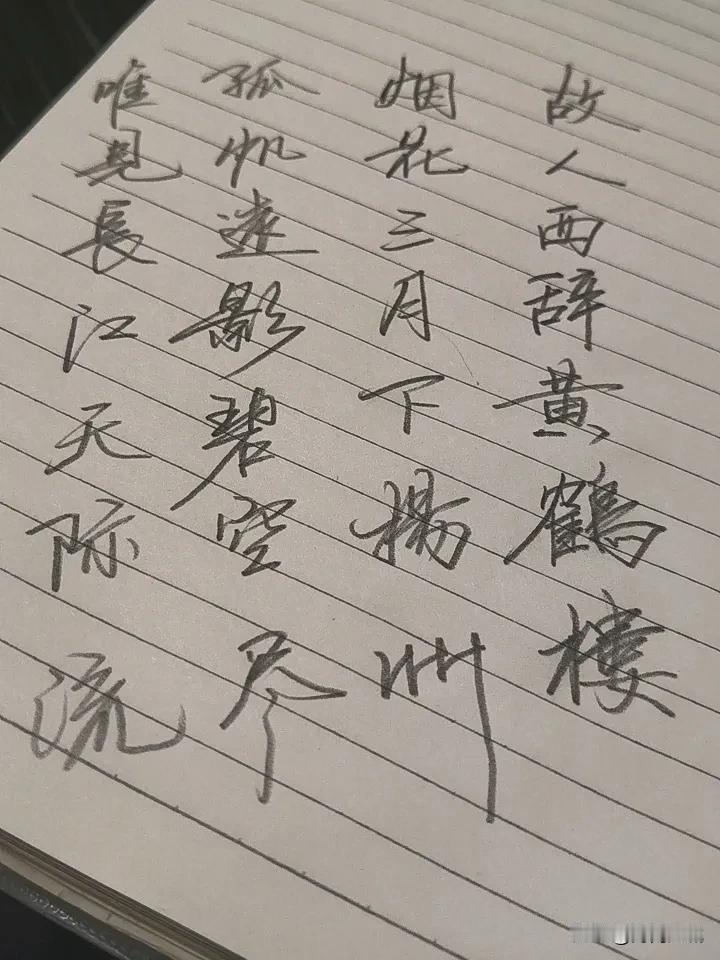 故人西辞黄鹤楼
烟花三月下揚州
孤帆遠影碧空尽
唯見長江天际流